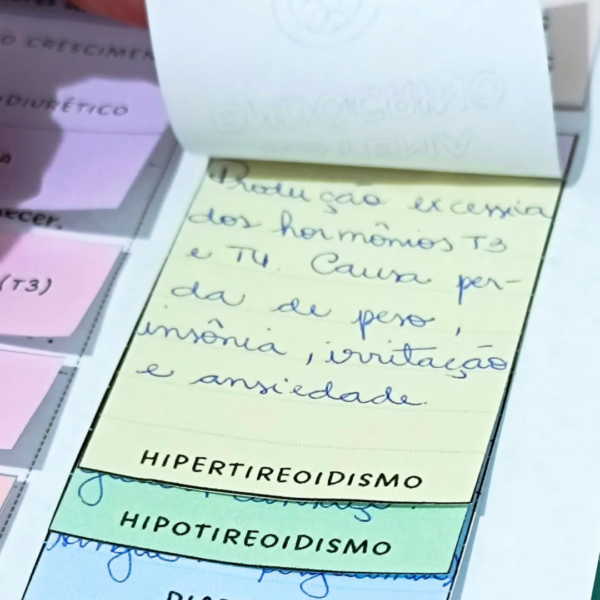 O CRESCIMEN
DIURÉTICO
A
ECER.
(T3)
Produção excessia
dos hormônios T3
e T4. Causa per-
da de peso,
insônia, irritação
e ansiedade.
HIPERTIREOIDISMO
HIPOTIREOIDISMO